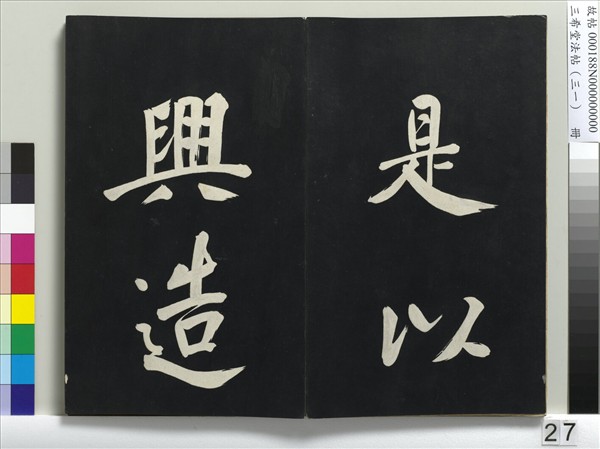 是以
興造
故帖 000188N000000000
三希堂法帖（三一） 冊
27